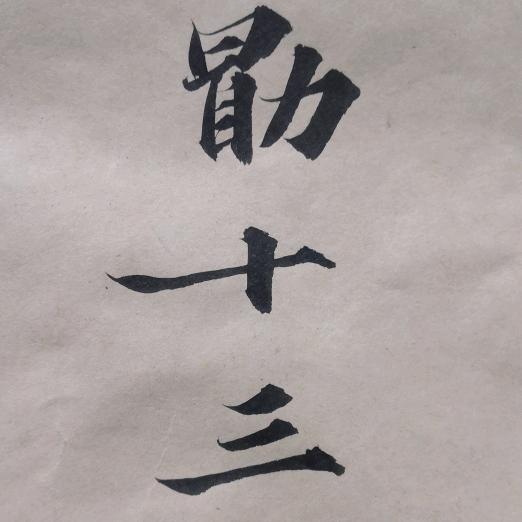 勖十三